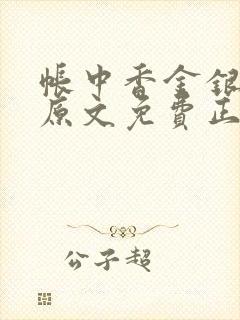 帐中香金银
原文免费正
公子超